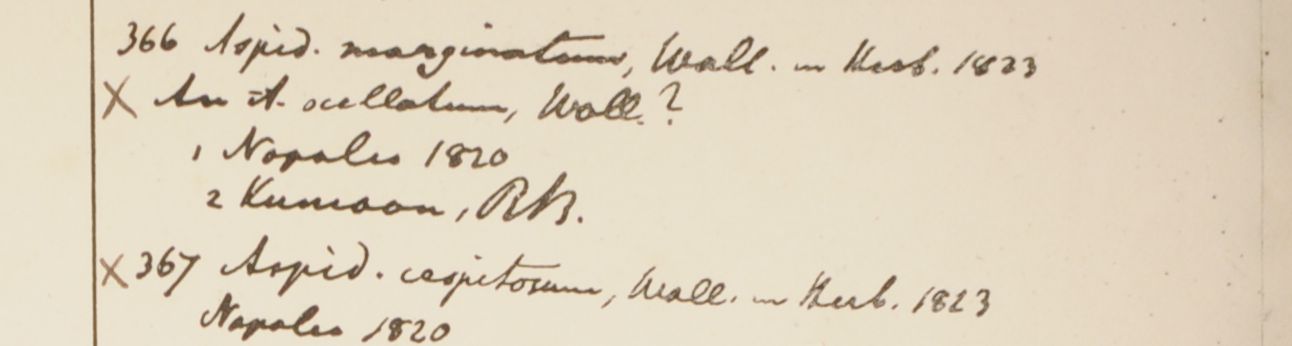 366 Aspid. marginatum, Wall. in Herb. 1823
X An A. ocellatum, Wall.?
1 Napalia 1820
2 Kumaon, R.B.
X 367 Aspid. caespitosum, Wall. in Herb. 1823
Napalia 1820